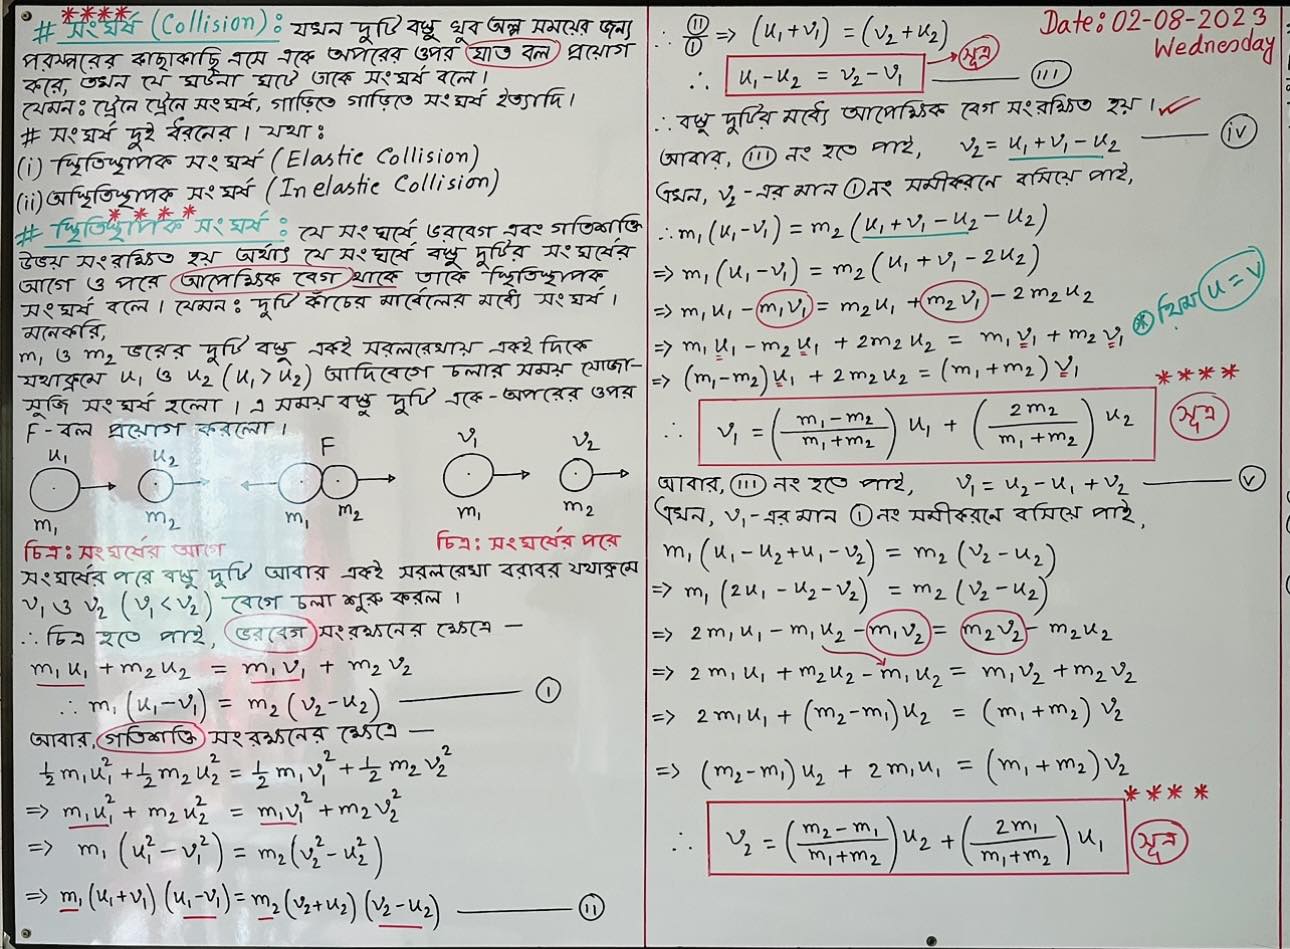 ****
# সংঘর্ষ (Collision): যখন দুটি বস্তু খুব অল্প সময়ের জন্য
পরস্পরের কাছাকাছি এসে একে অপরের ওপর ঘাত বল প্রয়োগ
করে, তখন যে ঘটনা ঘটে তাকে সংঘর্ষ বলে।
যেমন: ট্রেনে ট্রেনে সংঘর্ষ, গাড়িতে গাড়িতে সংঘর্ষ ইত্যাদি।
# সংঘর্ষ দুই ধরনের। যথা:
(i) স্থিতিস্থাপক সংঘর্ষ (Elastic Collision)
(ii) অস্থিতিস্থাপক সংঘর্ষ (Inelastic Collision)
****
# স্থিতিস্থাপক সংঘর্ষ: যে সংঘর্ষে ভরবেগ এবং গতিশক্তি
উভয় সংরক্ষিত হয় অর্থাৎ যে সংঘর্ষে বস্তু দুটির সংঘর্ষের
আগে ও পরে আপেক্ষিক বেগ থাকে তাকে স্থিতিস্থাপক
সংঘর্ষ বলে। যেমন: দুটি কাঁচের মার্বেলের মধ্যে সংঘর্ষ।
মনেকরি,
m₁ ও m₂ ভরের দুটি বস্তু একই সরলরেখায় একই দিকে
যথাক্রমে u₁ ও u₂ (u₁ > u₂) আদিবেগে চলার সময় সোজা-
সুজি সংঘর্ষ হলো। এ সময় বস্তু দুটি একে-অপরের ওপর
F-বল প্রয়োগ করলো।
u₁ u₂ F v₁ v₂
m₁ m₂ m₁ m₂ m₁ m₂
চিত্র: সংঘর্ষের আগে চিত্র: সংঘর্ষের পরে
সংঘর্ষের পরে বস্তু দুটি আবার একই সরলরেখা বরাবর যথাক্রমে
v₁ ও v₂ (v₁ < v₂) বেগে চলা শুরু করল।
∴ চিত্র হতে পাই, ভরবেগ সংরক্ষনের ক্ষেত্রে —
m₁u₁ + m₂u₂ = m₁v₁ + m₂v₂
∴ m₁(u₁ - v₁) = m₂(v₂ - u₂) —— (i)
আবার, গতিশক্তি সংরক্ষনের ক্ষেত্রে —
½ m₁u₁² + ½ m₂u₂² = ½ m₁v₁² + ½ m₂v₂²
=> m₁u₁² + m₂u₂² = m₁v₁² + m₂v₂²
=> m₁(u₁² - v₁²) = m₂(v₂² - u₂²)
=> m₁(u₁+v₁)(u₁-v₁) = m₂(v₂+u₂)(v₂-u₂) —— (ii)
Date: 02-08-2023
Wednesday
∴ (ii)/(i) => (u₁+v₁) = (v₂+u₂)
∴ u₁ - u₂ = v₂ - v₁ → সূত্র —— (iii)
∴ বস্তু দুটির মধ্যে আপেক্ষিক বেগ সংরক্ষিত হয়। ✓
আবার, (iii) নং হতে পাই, v₂ = u₁ + v₁ - u₂ —— (iv)
এখন, v₂-এর মান (i) নং সমীকরনে বসিয়ে পাই,
∴ m₁(u₁ - v₁) = m₂(u₁ + v₁ - u₂ - u₂)
=> m₁(u₁ - v₁) = m₂(u₁ + v₁ - 2u₂)
=> m₁u₁ - m₁v₁ = m₂u₁ + m₂v₁ - 2m₂u₂
=> m₁u₁ - m₂u₁ + 2m₂u₂ = m₁v₁ + m₂v₁
* থিম u = v
=> (m₁-m₂)u₁ + 2m₂u₂ = (m₁+m₂)v₁
****
∴ v₁ = ((m₁-m₂)/(m₁+m₂)) u₁ + (2m₂/(m₁+m₂)) u₂ সূত্র
আবার, (iii) নং হতে পাই, v₁ = u₂ - u₁ + v₂ —— (v)
এখন, v₁-এর মান (i) নং সমীকরনে বসিয়ে পাই,
m₁(u₁ - u₂ + u₁ - v₂) = m₂(v₂ - u₂)
=> m₁(2u₁ - u₂ - v₂) = m₂(v₂ - u₂)
=> 2m₁u₁ - m₁u₂ - m₁v₂ = m₂v₂ - m₂u₂
=> 2m₁u₁ + m₂u₂ - m₁u₂ = m₁v₂ + m₂v₂
=> 2m₁u₁ + (m₂-m₁)u₂ = (m₁+m₂)v₂
=> (m₂-m₁)u₂ + 2m₁u₁ = (m₁+m₂)v₂
****
∴ v₂ = ((m₂-m₁)/(m₁+m₂)) u₂ + (2m₁/(m₁+m₂)) u₁ সূত্র